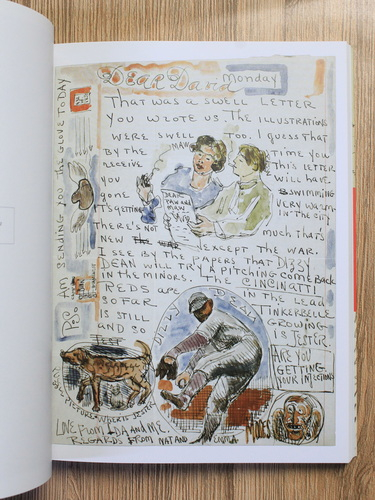 Dear David Monday
THAT WAS A SWELL LETTER
YOU WROTE US. THE ILLUSTRATIONS
WERE SWELL TOO. I GUESS THAT
BY THE TIME YOU
RECEIVE THIS LETTER
YOU WILL HAVE
GONE SWIMMING
IT'S GETTING VERY WARM
IN THE CITY
THERE'S NOT MUCH THAT'S
NEW EXCEPT THE WAR.
I SEE BY THE PAPERS THAT DIZZY
DEAN WILL TRY A PITCHING COME BACK
IN THE MINORS. THE CINCINATTI
REDS ARE IN THE LEAD
SO FAR TINKERBELLE
IS STILL GROWING
AND SO IS JESTER
ARE YOU
GETTING
YOUR INJECTIONS
DIZZY DEAN
JESTER
LOVE FROM IDA AND ME.
REGARDS FROM NAT AND EMMA
P.S. I AM SENDING YOU THE GLOVE TODAY